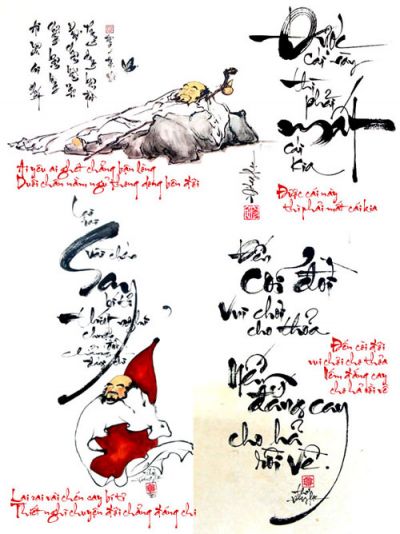 Ai yêu ai ghét chẳng bận lòng
Duỗi chân nằm ngủ thong dong bên đời
Được
cái này
thì phải
mất
cái
kia
Được cái này
thì phải mất cái kia
Lai rai
vài chén
Say
bí tỉ
Thiết nghĩ
chuyện
đời
chẳng
đáng chi
Lai rai vài chén say bí tỉ
Thiết nghĩ chuyện đời chẳng đáng chi
Đến
Cõi đời
vui chơi
cho thỏa
Nếm
đắng cay
cho hả
rồi về.
Đến cõi đời
vui chơi cho thỏa
Nếm đắng cay
cho hả rồi về